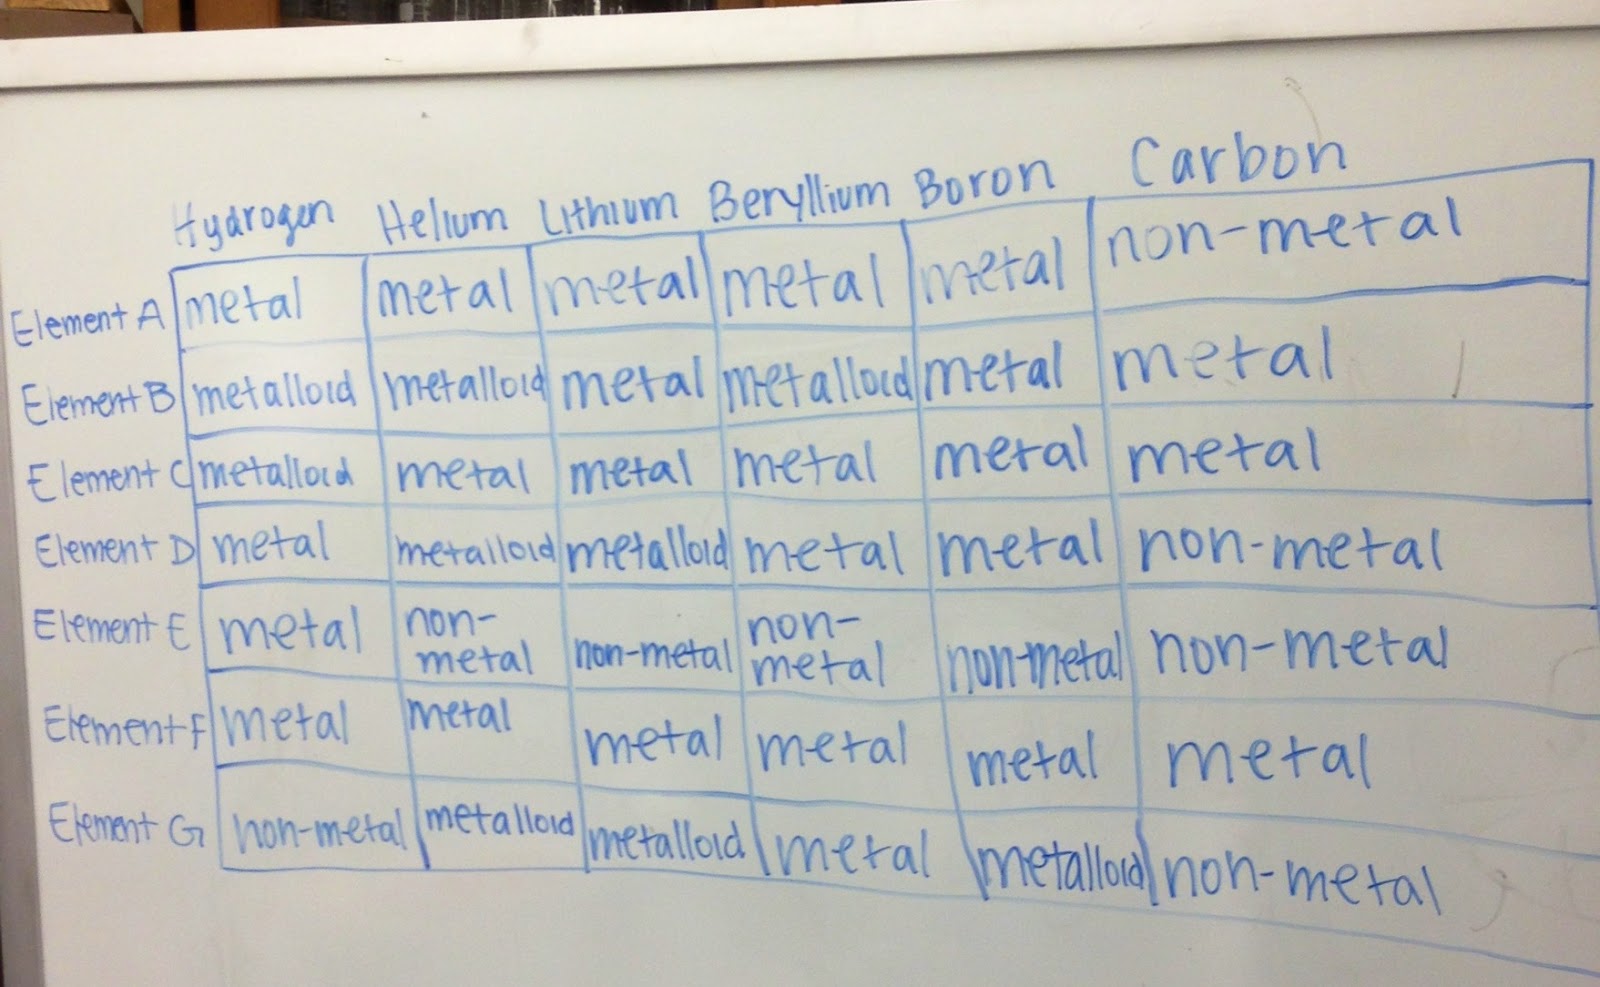 Hydrogen Helium Lithium Beryllium Boron Carbon
Element A metal metal metal metal metal non-metal
Element B metalloid metalloid metal metalloid metal metal
Element C metalloid metal metal metal metal metal
Element D metal metalloid metalloid metal metal non-metal
Element E metal non-metal non-metal non-metal non-metal non-metal
Element F metal metal metal metal metal metal
Element G non-metal metalloid metalloid metal metalloid non-metal